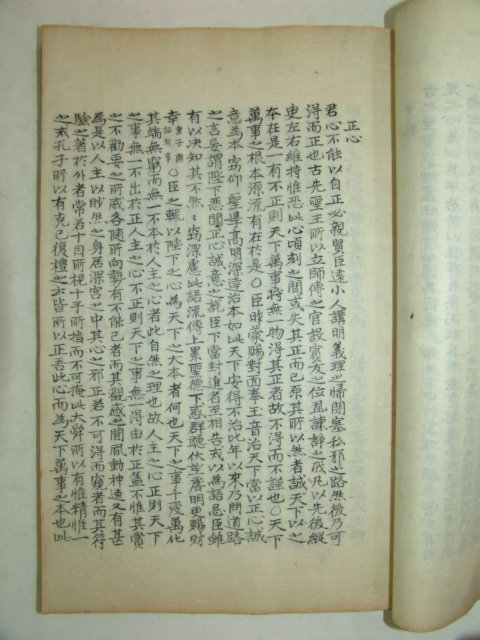 正心
君心不能以自正必親賢臣遠小人講明義理之歸閉塞私邪之路然後乃可
得而正也古先聖王所以立師傅之官設賓友之位置諫諍之職凡以先後縱
臾左右維持惟恐此心頃刻之間或失其正而已原其所以然者誠天下以之
本在是一有不正則天下萬事將無一物得其正者故不得而不謹也○天下
萬事之根本源流有在於是○臣昨蒙賜對面奉玉音治天下當以正心誠
意為本竊仰聖學高明深達治本如此天下安得不治比年以來乃聞道路
之言妄謂陛下惡聞正心誠意之說臣下當封進者至相告戒以為語忌臣雖
有以決知其不然竊深慮此語流傳上累聖德下惑群聽伏望睿明更賜財
幸○臣之輒以陛下之心為天下之大本者何也天下之事千變萬化
其端無窮而無一不本於人主之心者此自然之理也故人主之心正則天下
之事無一不出於正人主之心不正則天下之事無一得由於正盖不惟其賞
之不勸要之所威各隨所向勢有不能已者而其觀感之間風動神速又有甚
焉是以人主以眇然之身居深宮之中其心之邪正若不可得而窺者而其符
驗之著於外者常若十目所視十手所指而不可掩此大舜所以有惟精惟一
之戒孔子所以有克己復禮之云皆所以正吾此心而為天下萬事之本也此